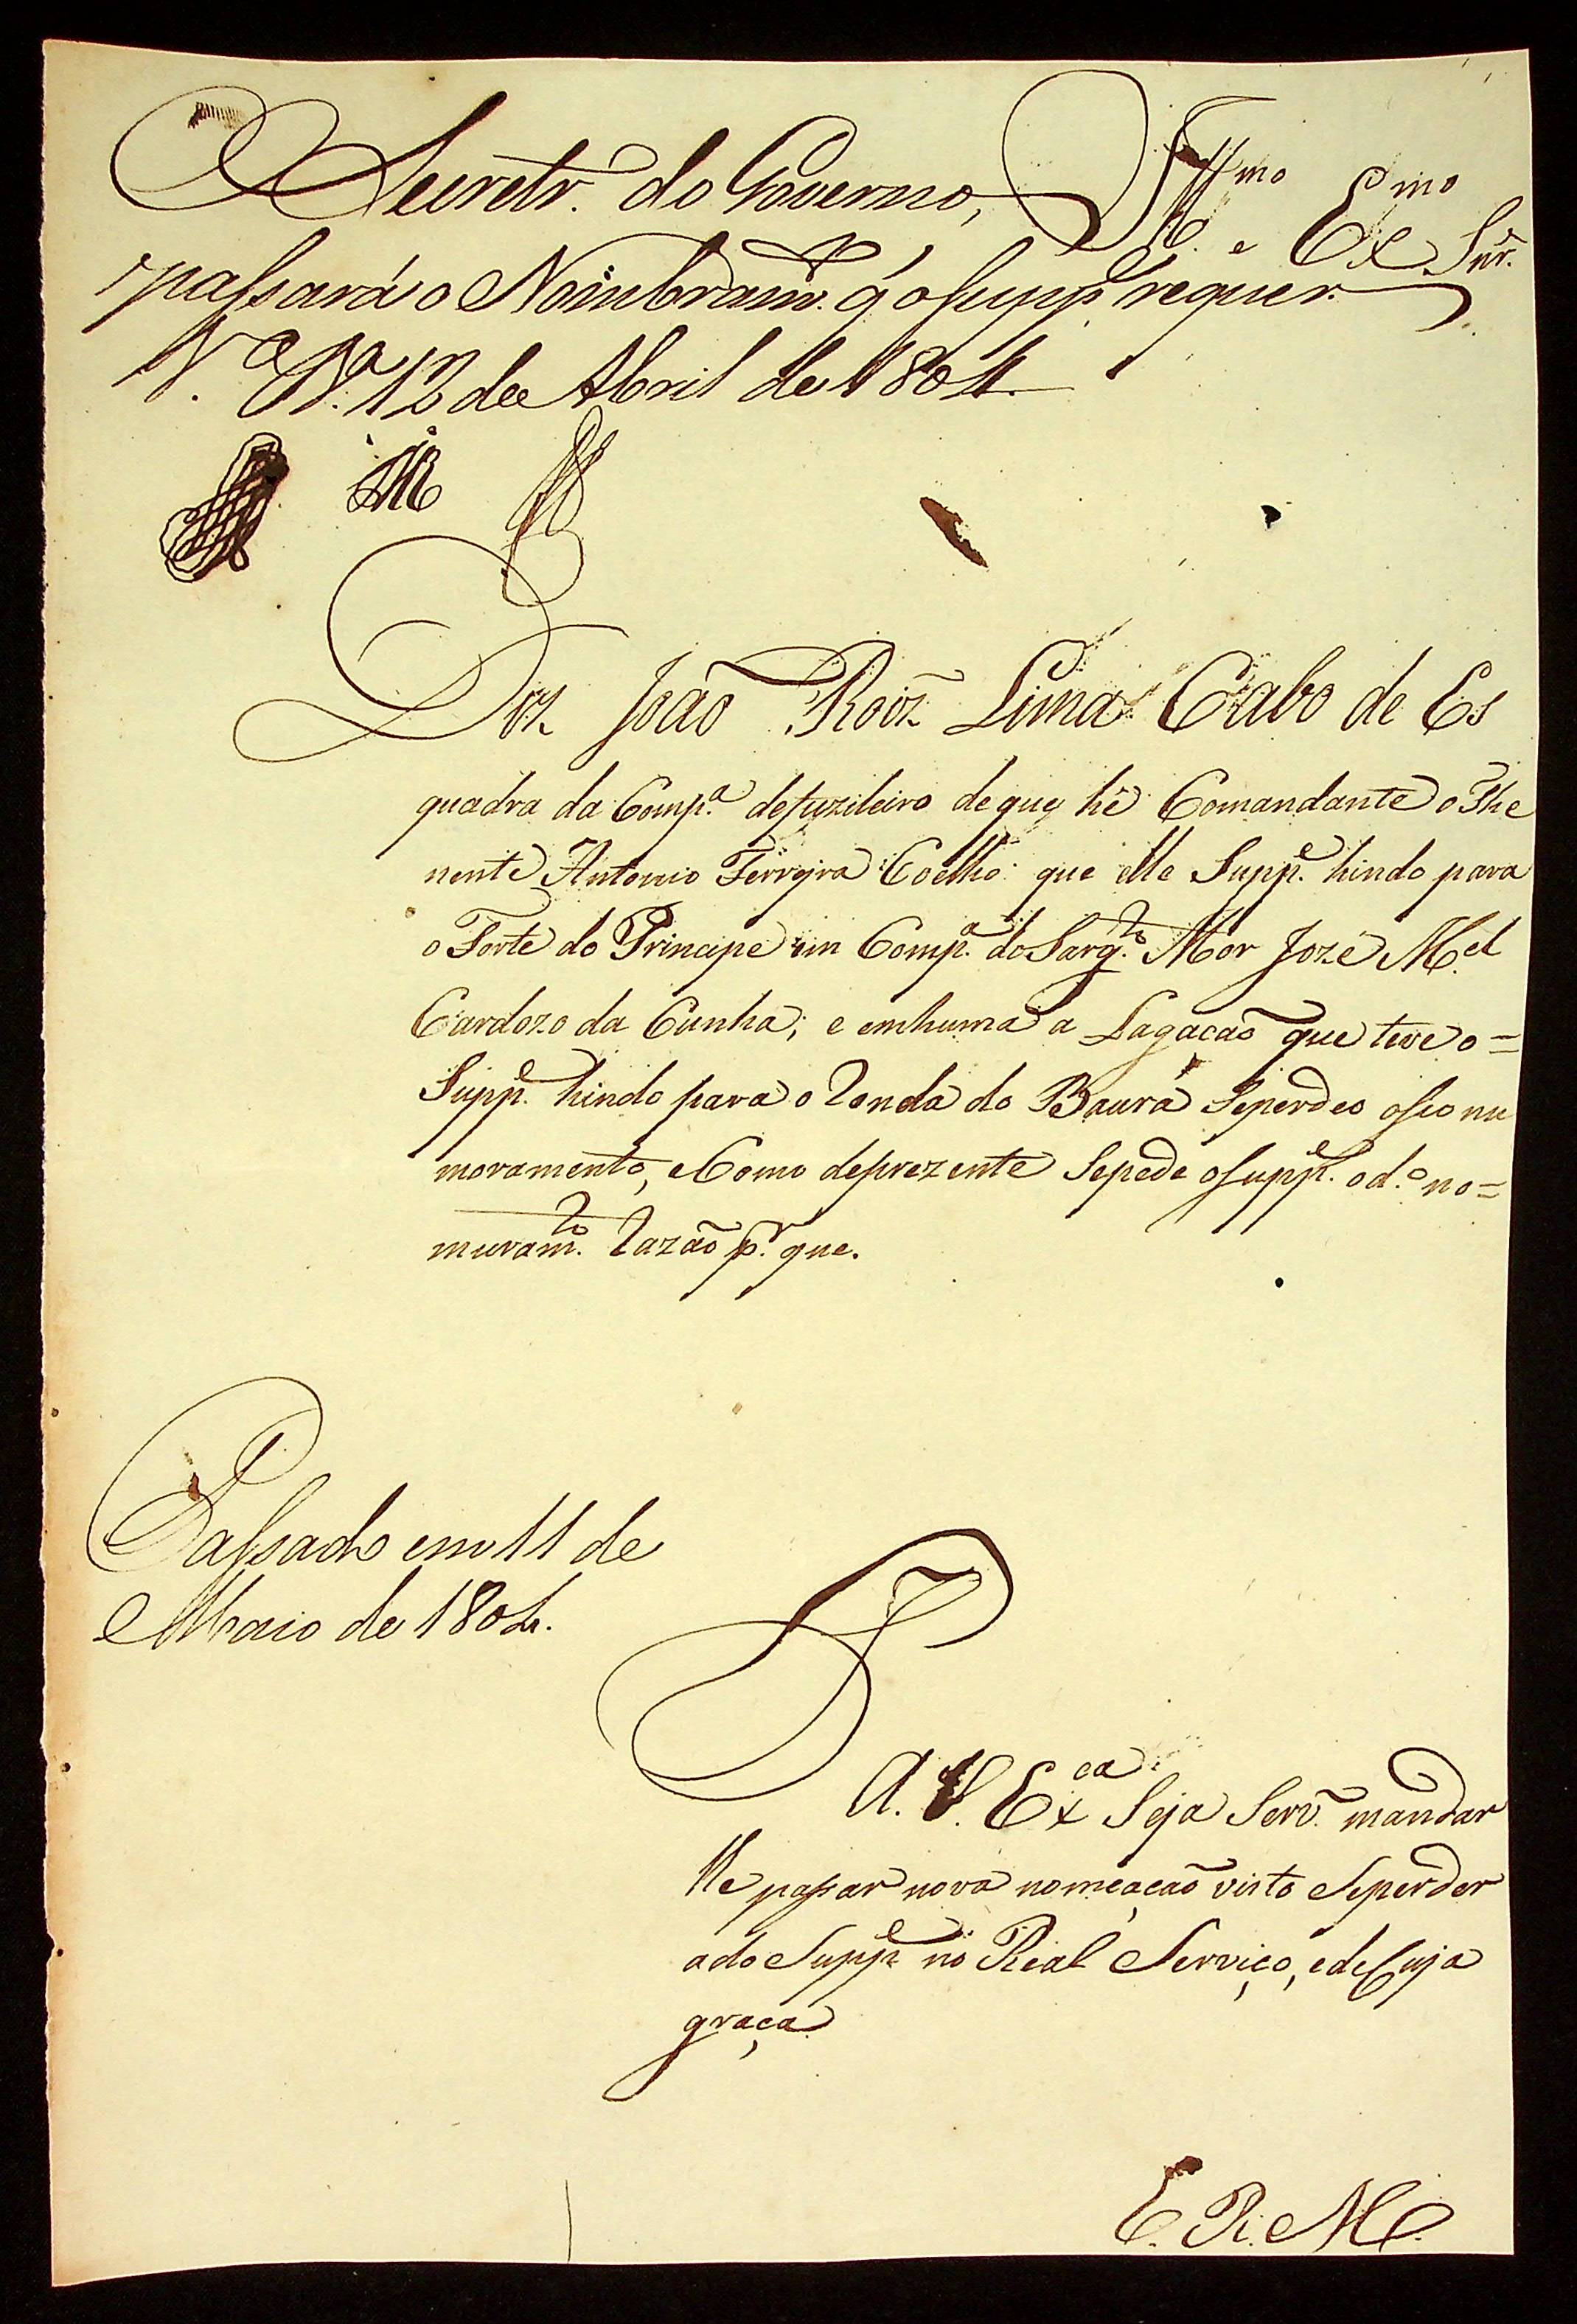 O Secretr.º do Governo,
passará o Nombram.to q̃ o supp.e requer.
V.a B.a 12 de Abril de 1804.
Ill.mo e Ex.mo Snr.
Diz João Roiz̃ Lima Cabo de Es
quadra da Comp.a de fuzileiro de que hé Comandante o The
nente Antonio Ferrejra Coelho: que elle Supp.e hindo para
o Forte do Principe em Comp.a do Sarg.to Mor Jozé M.el
Cardozo da Cunha; e em huma a Lagacaõ que teve o =
Supp.e hindo para o Ronda do Baurá Seperdeo oseo nu
moramento, e Como deprezente Sepede o supp.e o d.o no =
muram.to Razaõ p.r que.
Passado em 11 de
Maio de 1804.
P
A. V. Ex.ca Seja Serv. mandar
lle passar nova nomeaçaõ visto Seperder
a do Supp.e no Rial Serviço, e de Cuja
graça
E. R. M.